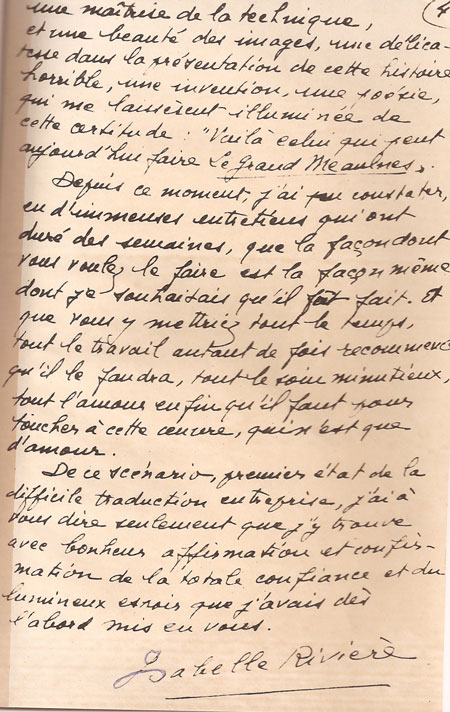 4
une maîtrise de la technique,
et une beauté des images, une délica-
tesse dans la présentation de cette histoire
horrible, une invention, une poésie,
qui me laissèrent illuminée de
cette certitude : "Voilà celui qui peut
aujourd'hui faire Le Grand Meaulnes.
Depuis ce moment, j'ai pu constater,
en d'immenses entretiens qui ont
duré des semaines, que la façon dont
vous voulez le faire est la façon même
dont je souhaitais qu'il fût fait. Et
que vous y mettriez tout le temps,
tout le travail autant de fois recommencé
qu'il le faudra, tout le soin minutieux,
tout l'amour enfin qu'il faut pour
toucher à cette œuvre, qui n'est que
d'amour.
De ce scénario, premier état de la
difficile traduction entreprise, j'ai à
vous dire seulement que j'y trouve
avec bonheur affirmation et confir-
mation de la totale confiance et du
lumineux espoir que j'avais dès
l'abord mis en vous.
Isabelle Rivière